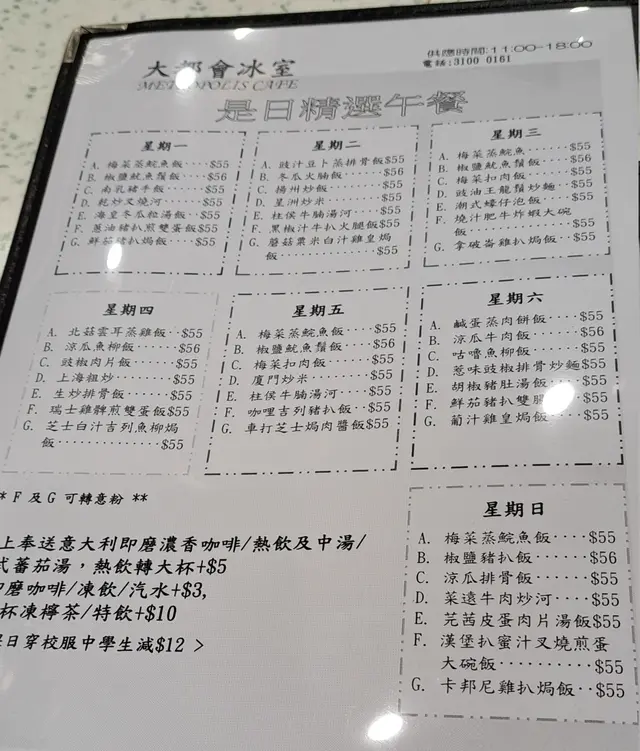 大都會冰室
METROPOLIS CAFE
供應時間:11:00-18:00
電話:3100 0161
是日精選午餐
星期一
A. 梅菜蒸鯇魚飯····$55
B. 椒鹽魷魚鬚飯···$56
C. 南乳豬手飯·····$55
D. 乾炒叉燒河·····$55
E. 海皇冬瓜粒湯飯··$55
F. 蔥油豬扒煎雙蛋飯$55
G. 鮮茄豬扒焗飯···$55
星期二
A. 豉汁豆卜蒸排骨飯$55
B. 冬瓜火腩飯·····$56
C. 揚州炒飯······$55
D. 星洲炒米······$55
E. 柱侯牛腩湯河····$55
F. 黑椒汁牛扒火腿飯$55
G. 蘑菇粟米白汁雞皇焗
飯···········$55
星期三
A. 梅菜蒸鯇魚·····$55
B. 椒鹽魷魚鬚飯····$56
C. 梅菜扣肉飯·····$55
D. 豉油王龍鬚炒麵···$55
E. 潮式蠔仔泡飯····$55
F. 燒汁肥牛炸蝦大碗
飯···········$55
G. 拿破崙雞扒焗飯··$55
星期四
A. 北菇雲耳蒸雞飯··$55
B. 涼瓜魚柳飯·····$56
C. 豉椒肉片飯·····$55
D. 上海粗炒······$55
E. 生炒排骨飯·····$55
F. 瑞士雞髀煎雙蛋飯$55
G. 芝士白汁吉列魚柳焗
飯···········$55
星期五
A. 梅菜蒸鯇魚飯···$55
B. 椒鹽魷魚鬚飯···$56
C. 梅菜扣肉飯····$55
D. 廈門炒米·····$55
E. 柱侯牛腩湯河···$55
F. 咖哩吉列豬扒飯··$55
G. 車打芝士焗肉醬飯$55
星期六
A. 鹹蛋蒸肉餅飯···$55
B. 涼瓜牛肉飯····$56
C. 咕嚕魚柳飯····$55
D. 惹味豉椒排骨炒麵$55
E. 胡椒豬肚湯飯···$55
F. 鮮茄豬扒雙 $55
G. 葡汁雞皇焗飯···$55
** F 及 G 可轉意粉 **
上奉送意大利即磨濃香咖啡/熱飲及中湯/
式蕃茄湯，熱飲轉大杯+$5
磨咖啡/凍飲/汽水+$3,
杯凍檸茶/特飲+$10
日穿校服中學生減$12 >
星期日
A. 梅菜蒸鯇魚飯···$55
B. 椒鹽豬扒飯····$56
C. 涼瓜排骨飯····$55
D. 菜遠牛肉炒河···$55
E. 芫茜皮蛋肉片湯飯$55
F. 漢堡扒蜜汁叉燒煎蛋
大碗飯·········$55
G. 卡邦尼雞扒焗飯··$55